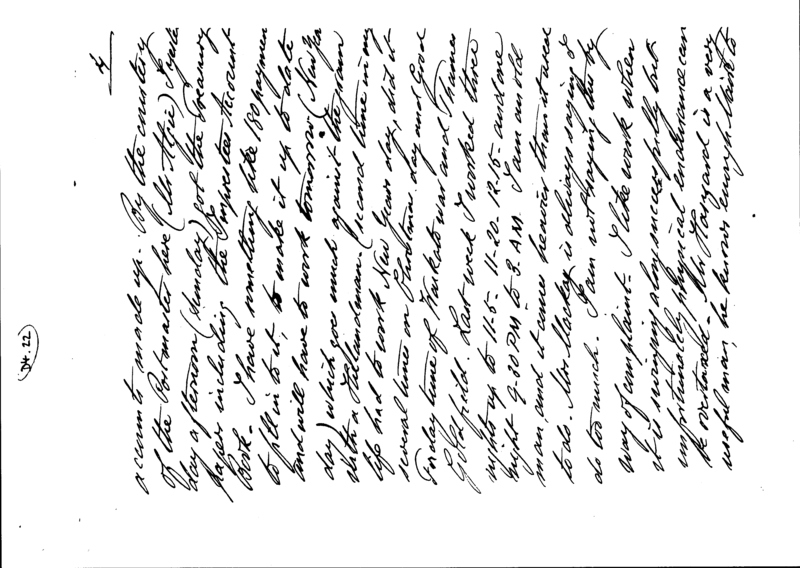 4
accounts made up. By the courtesy
of the Postmaster here (Mr Algie) I yester
day afternoon (Sunday) got the Treasury
paper including the Imprestee Account
Book. I have something like 180 payments
to fill in to it, to make it up to date
and will have to work tomorrow (New Years
day) which goes much against the grain
with a Zealandman (second time in my
life had to work New Years day, did it
several times on Christmas day and Good
Friday time of Waikato war and Thames
Goldfield. Last week I worked three
nights up to 11-5- 11-20- 12-15- and one
night 9-30 PM to 3 AM. I am an old
man and it comes heavier than it used
to do. Mrs Mackay is always saying I
do too much. I am not saying this by
way of complaint. I like work when
it is surging along successfully but
unfortunately physical endurance can
be overtaxed. Mr Haszard is a very
useful man, he knows enough Maori to
D4.22